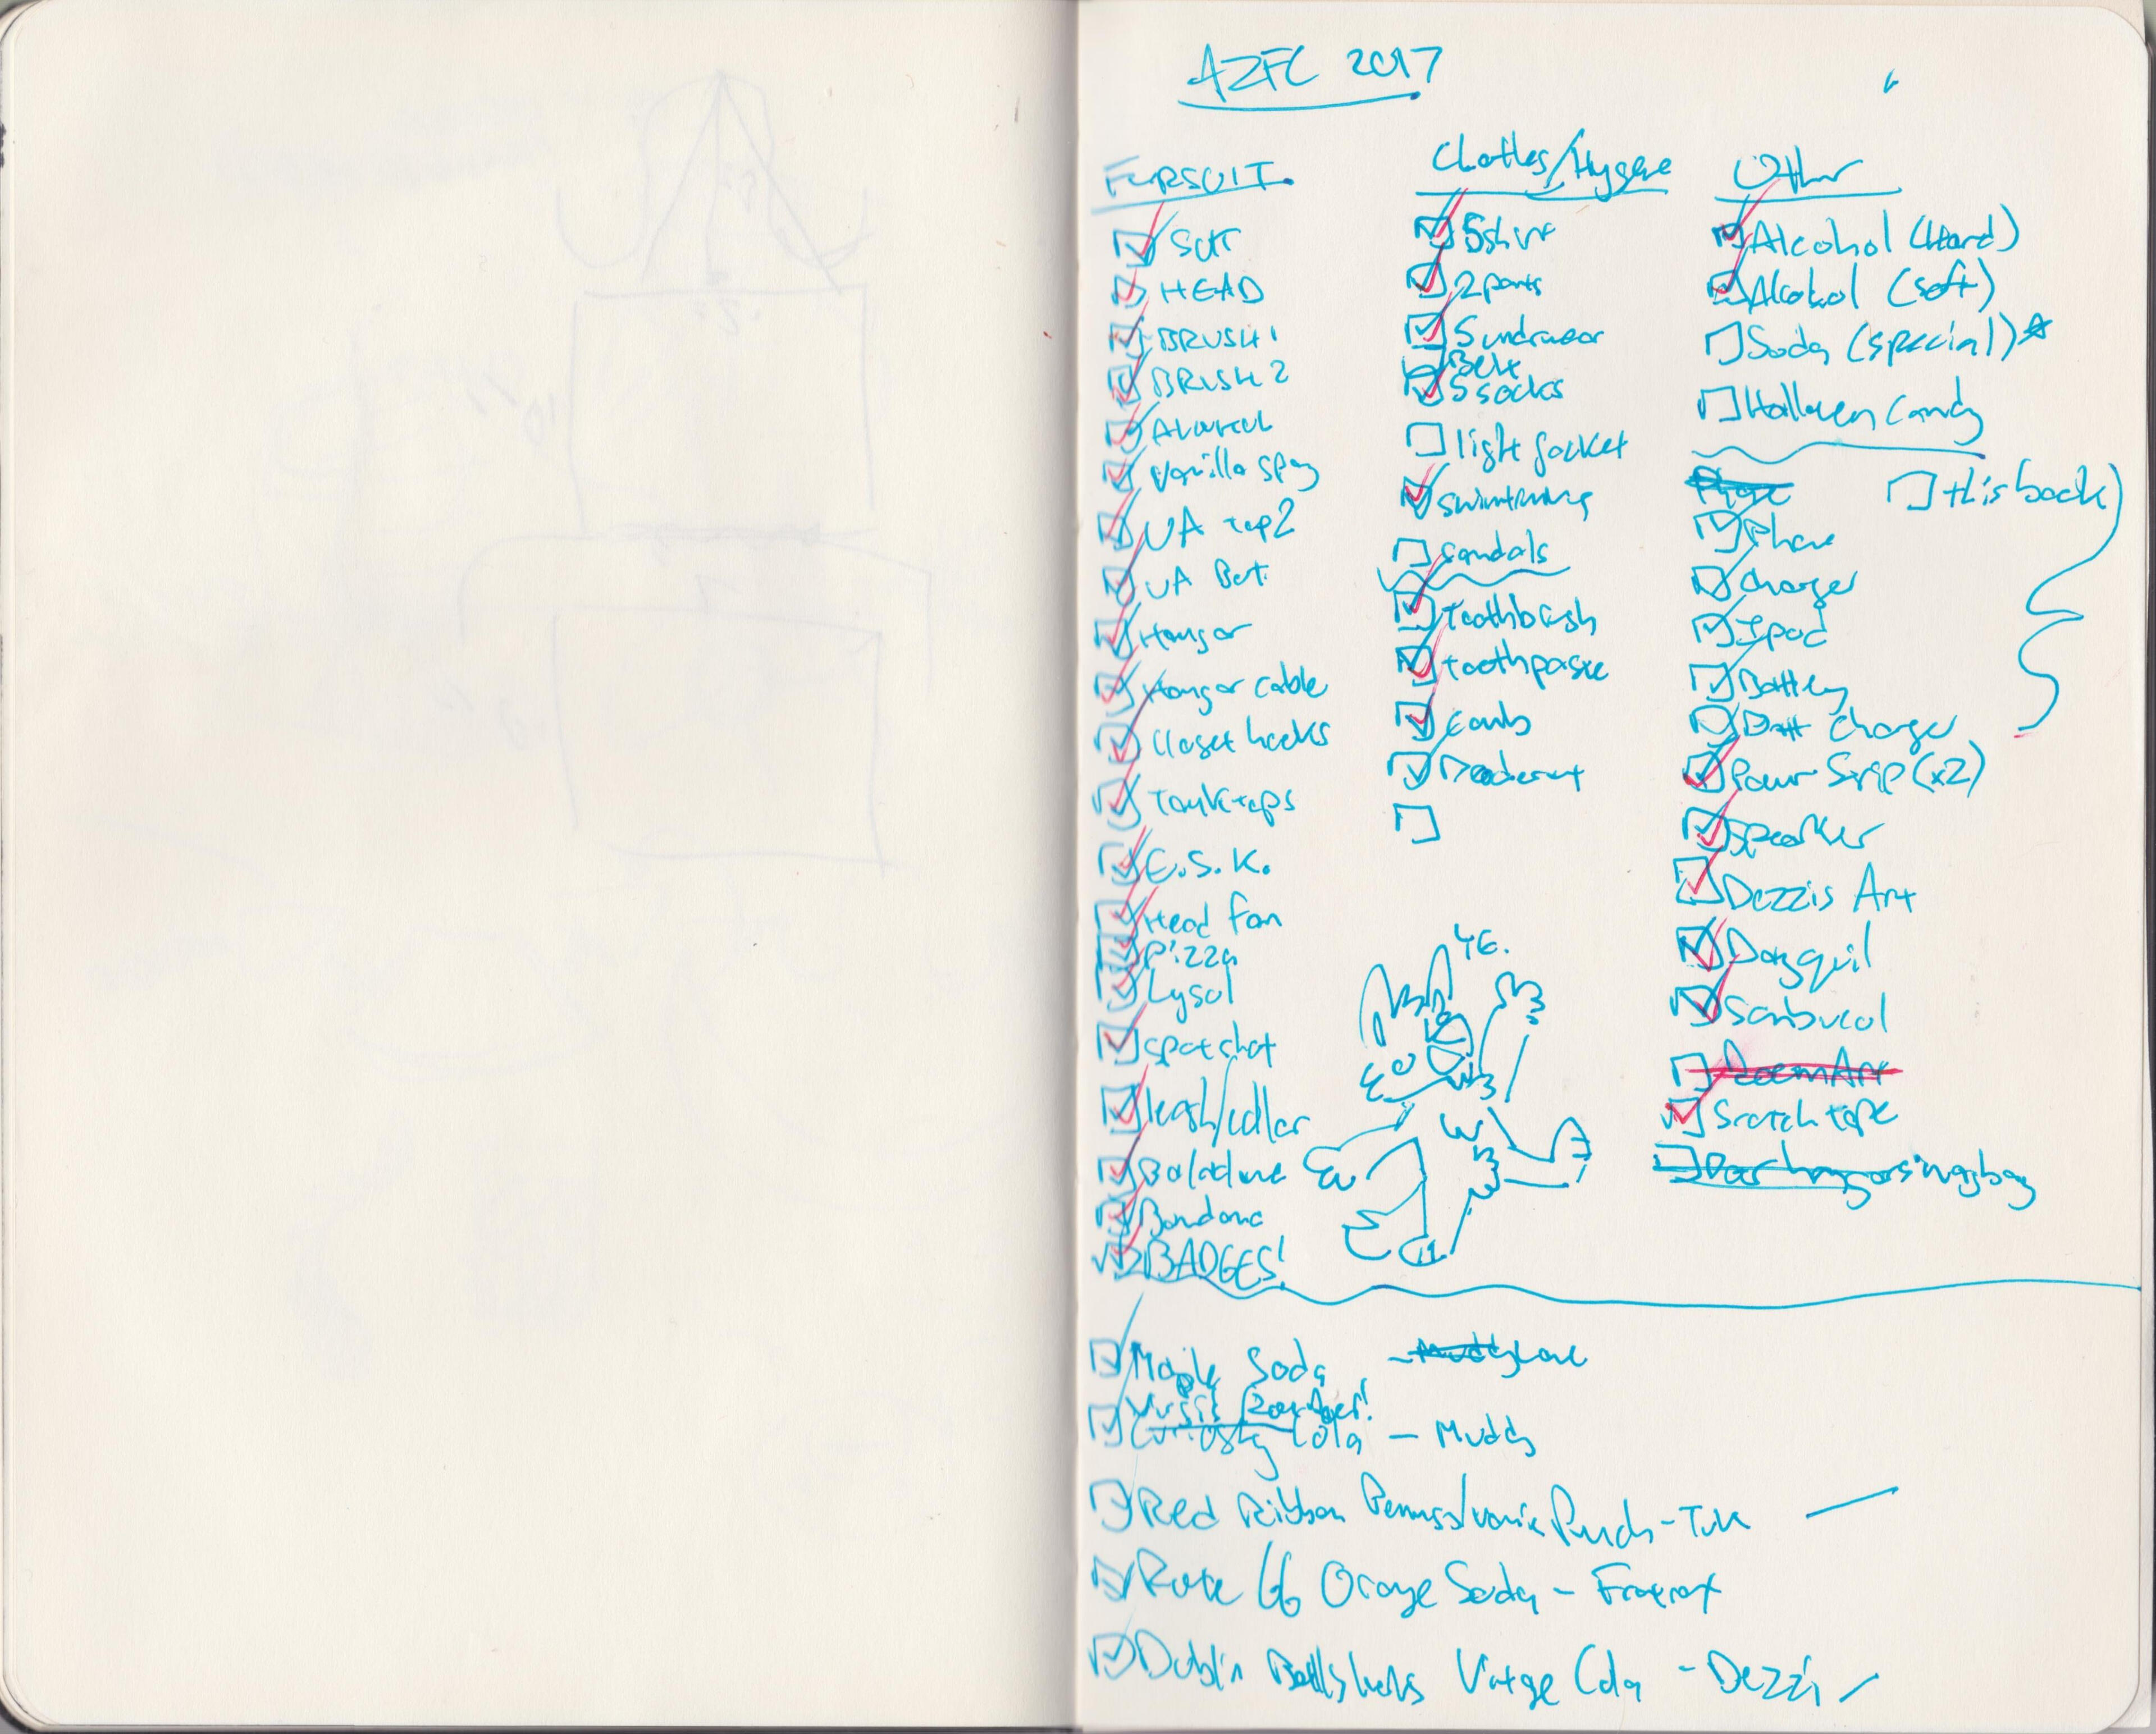 AZFC 2017
FURSUIT
SUIT
HEAD
BRUSH 1
BRUSH 2
Vanilla Spry
UA top 2
UA Bot.
Hangor
Hangor cable
Closet hooks
Tanktops
E.S.K.
Head Fan
Pizza
Lysol
spot shot
leash/collar
Bandana
BADGES!
Clothes/Hygene
5 shirt
2 pants
5 undrwear
Belt
5 socks
light jacket
swimtrunks
sandals
Toothbrush
toothpaste
comb
YE.
Other
Alcohol (Hard)
Alcohol (soft)
Soda (special)*
Halloween Candy
this book
Phone
Charger
Ipod
Battery
Batt Charger
Power Strip (x2)
Speaker
Dezzis Art
Dayquil
Sambucol
Room Art
Scotch tape
Maple Soda -
Curiosity Cola - Muddy
Red Ribbon Pennsylvania Punch -
Route 66 Orange Soda -
Dublin Vintge Cola - Dezzi